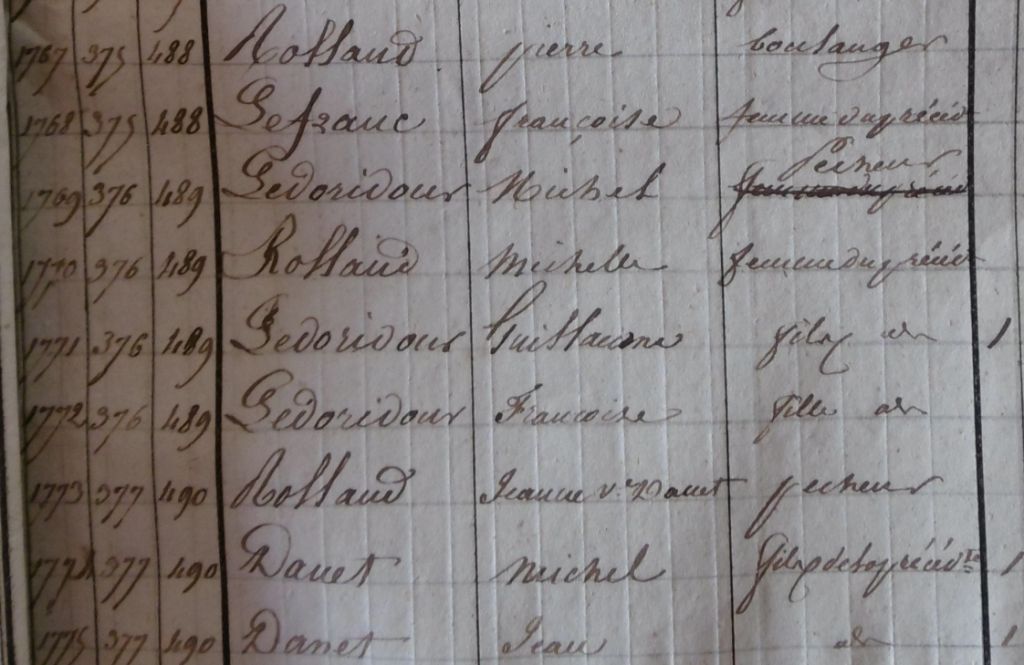 1767 375 488 Rolland pierre boulanger
1768 375 488 Lefranc françoise femme du préced
1769 376 489 Ledoridour Michel Pecheur
1770 376 489 Rolland Michelle femme du préced
1771 376 489 Ledoridour Guillaume fils de 1
1772 376 489 Ledoridour Francoise fille de
1773 377 490 Rolland Jeanne v. Danet pecheur
1774 377 490 Danet Michel fils de la précéd.te 1
1775 377 490 Danet Jean de 1